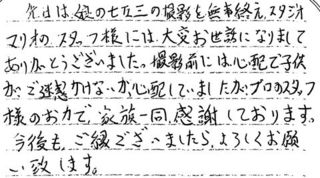 先日は、娘の七五三の撮影を無事終え、スタジオ
マリオの スタッフ様には、大変お世話になりまして
ありがとうございました。撮影前には心配で子供
がご迷惑かけないか心配していましたがプロのスタッフ
様のおかで、家族一同、感謝しております。
今後も、ご縁ございましたら、よろしくお願
い致します。